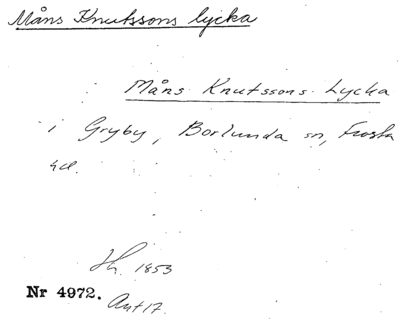 Måns Knutssons lycka
Måns Knutssons Lycka
i Gryby, Borlunda sn, Frosta
hd.
Sk. 1853
Nr 4972.
Ant 17.